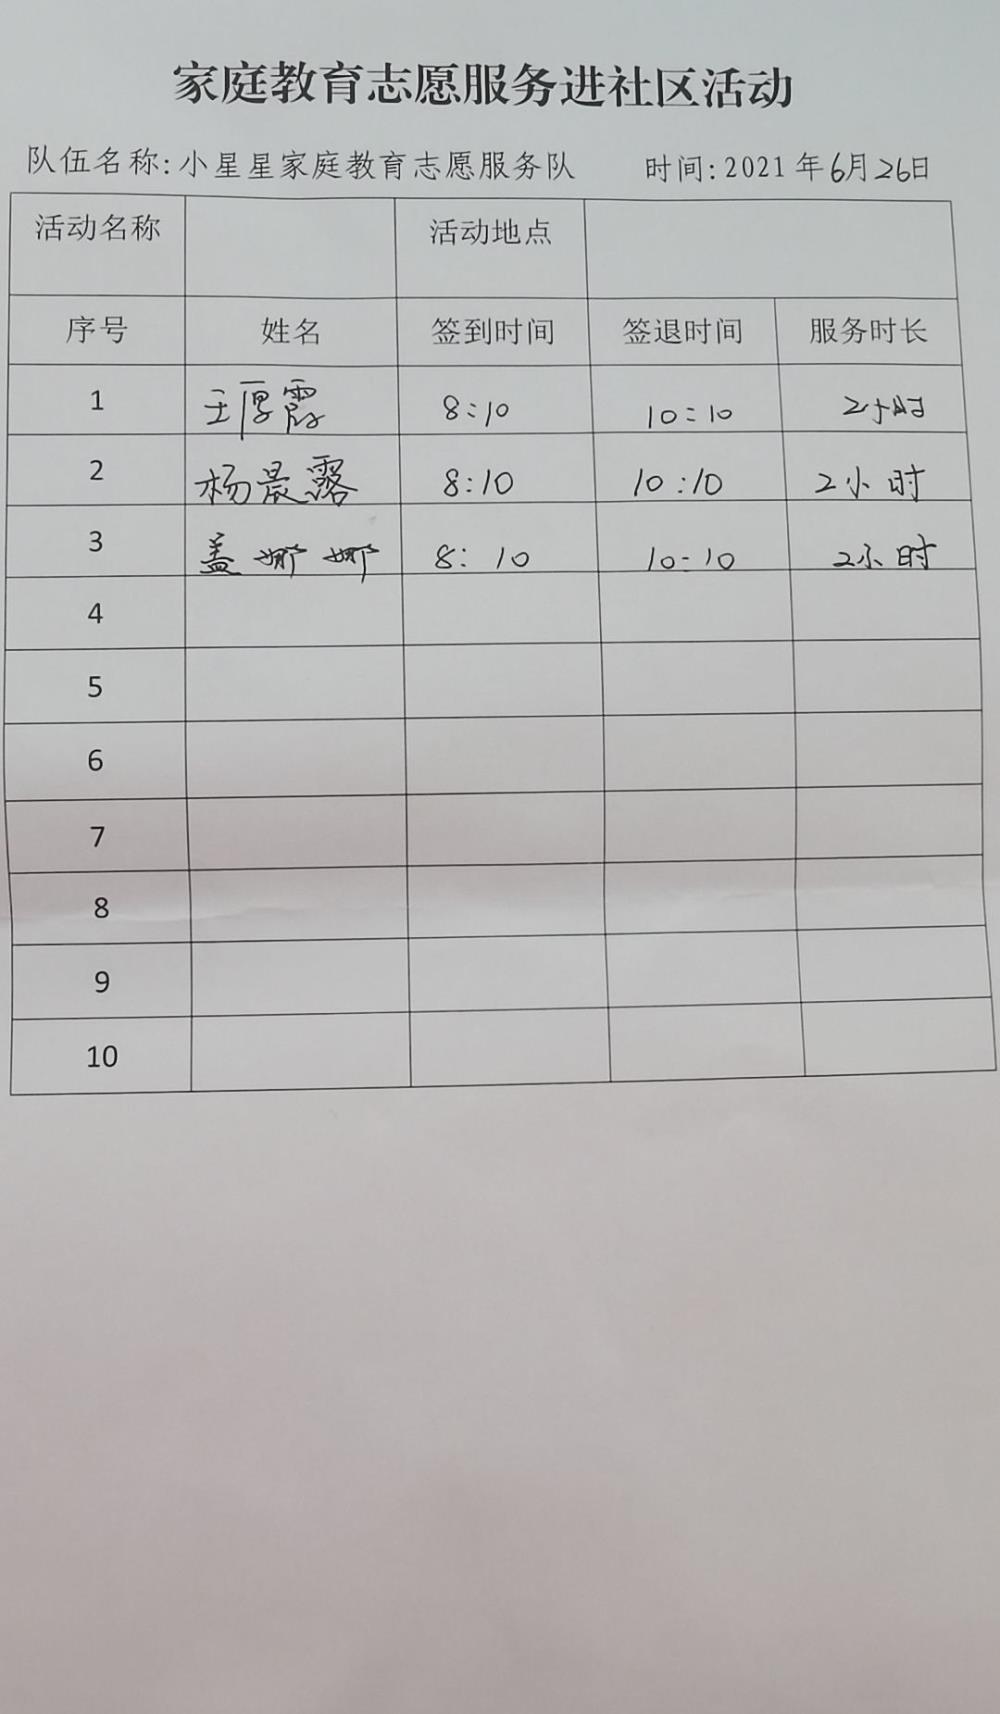 家庭教育志愿服务进社区活动
队伍名称:小星星家庭教育志愿服务队 时间:2021年6月26日
活动名称 活动地点
序号 姓名 签到时间 签退时间 服务时长
1 王厚霞 8:10 10:10 2小时
2 杨晨露 8:10 10:10 2小时
3 盖娜娜 8:10 10:10 2小时
4
5
6
7
8
9
10